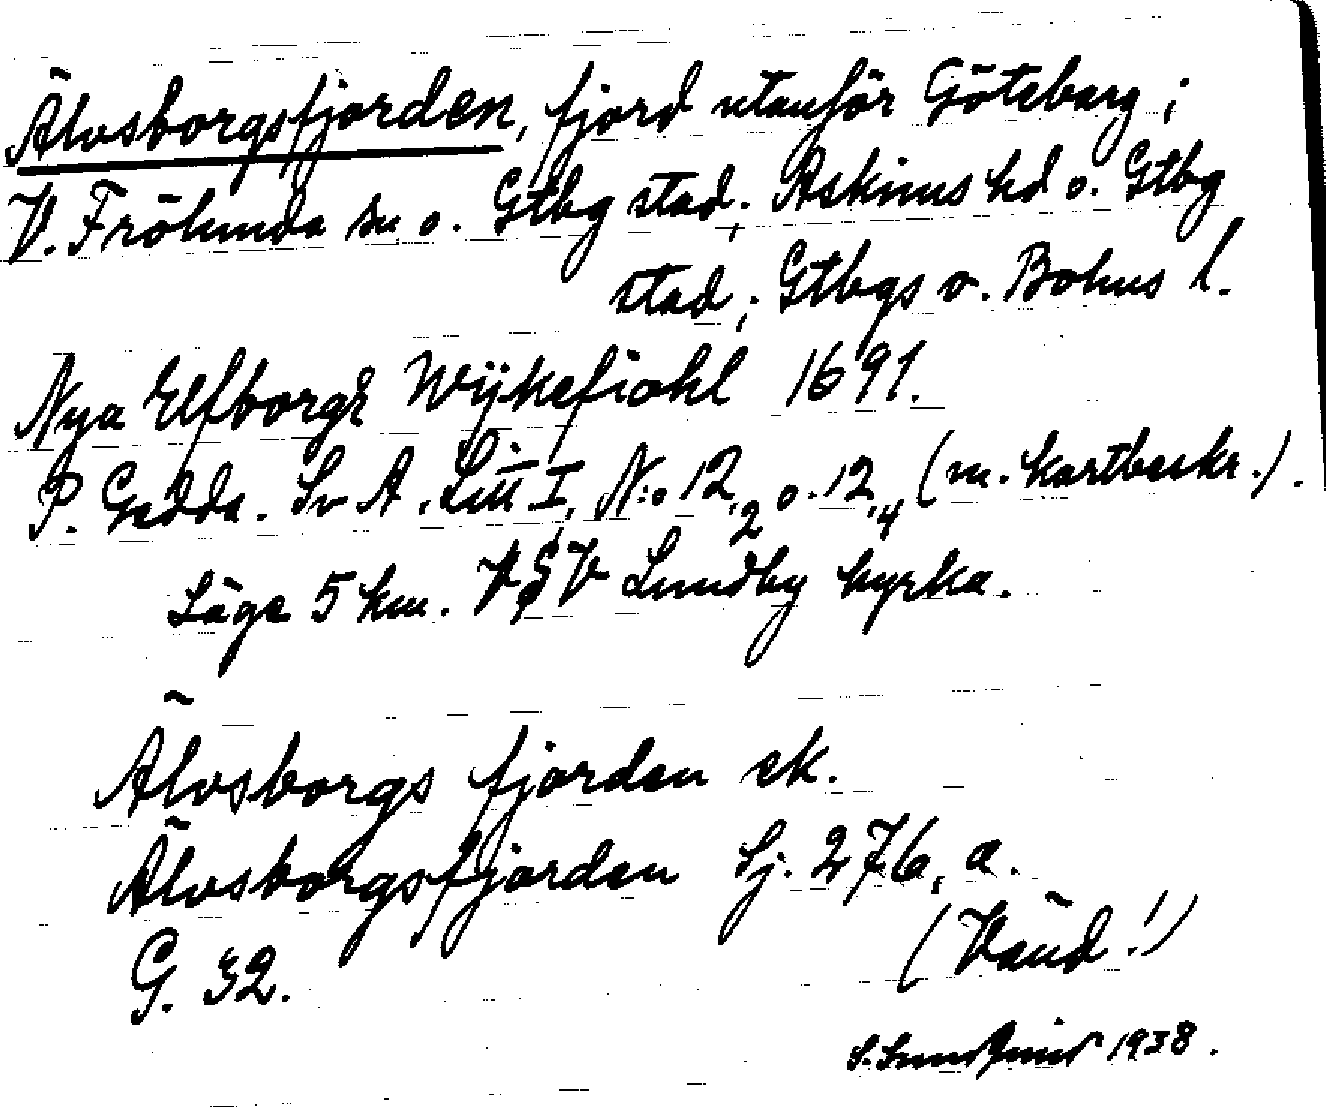 Älvsborgsfjorden, fjord utanför Göteborg;
V. Frölunda sn o. Gtbg stad; Askims hd o. Gtbg
stad; Gtbgs o. Bohus l.
Nya Elfborgz Wijkefiohl 1691.
P. Gedda. Sv A. Litt I, N:o 12,2 o. 12,4 (m. kartbeskr.).
Läge 5 km. VSV Lundby kyrka.
Älvsborgs fjorden ek.
Älvsborgsfjorden Sj. 276, a.
G. 32.
(Vänd!)
S. 1938.